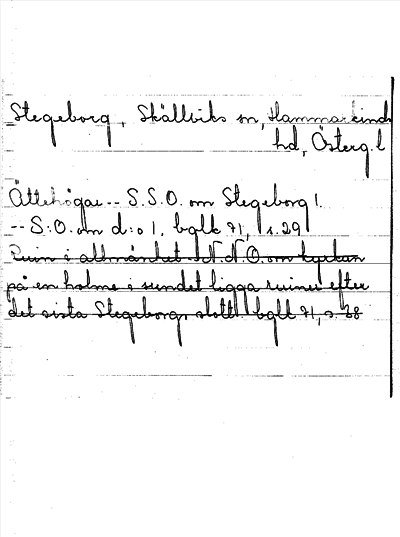 Stegeborg, Skällviks sn, Hammarkinds
hd, Österg. l
Ättehögar -- S.S.O. om Stegeborg 1.
-- S.O. om d:o 1, bglt 71, s. 29
Ruin i allmänhet N.N.O. om kyrkan
på en holme i sundet ligga ruiner efter
det sista Stegeborgs slott. bglt 71, s. 28